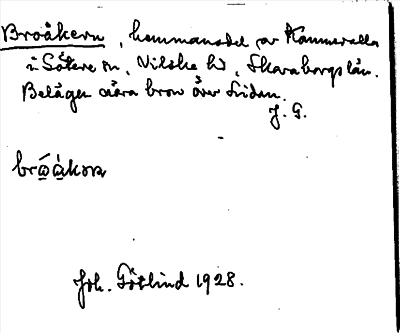 Broåkern, hemmansdel av Kammerella
i Sätere sn, Vilske hd, Skaraborgs län.
Belägen nära bron över Lidan.
J. G.
Joh. Götlind 1928.